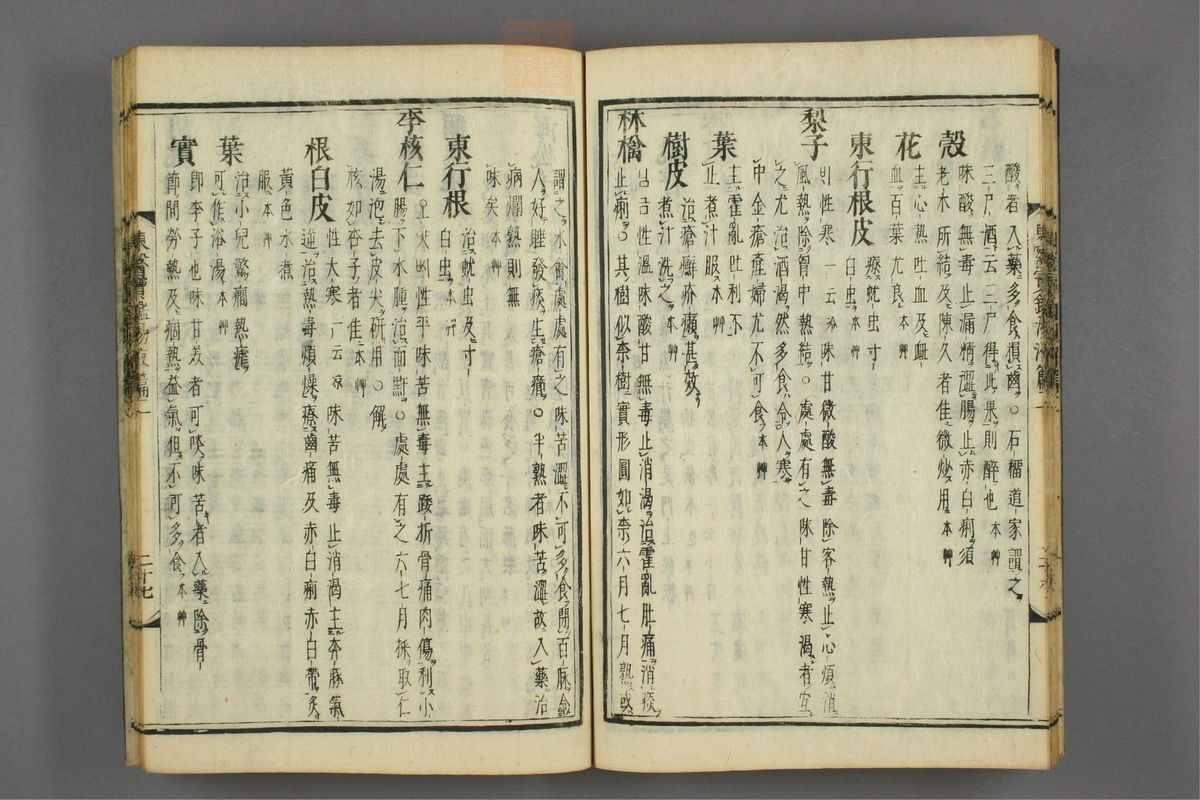 酸者入藥多食損齒○石榴道家謂之
三尸酒云三尸得此果則醉也本艸
殼味酸無毒止漏精澁腸止赤白痢須
老木所結及陳久者佳微炒用本艸
花主心熱吐血及衄
血百葉尤良本艸
東行根皮療蚘虫寸
白虫本艸
梨子性寒一云冷味甘微酸無毒除客熱止心煩消
風熱除胷中熱結○處處有之味甘性寒渴者宜
之尤治酒渴然多食令人寒
中金瘡産婦尤不可食本艸
葉主霍亂吐利不
止煮汁服本艸
樹皮治瘡癬疥癩甚效
煮汁洗之本艸
林檎性溫味酸甘無毒止消渴治霍亂肚痛消痰
止痢○其樹似柰樹實形圓如柰六月七月熟或
謂之水食處處有之味苦澁不可多食閉百脉令
人好睡發痰生瘡癤○半熟者味苦澁故入藥治
病爛熟則無
味矣本艸
東行根治蚘虫及寸
白虫本艸
李核仁性平味苦無毒主踒折骨痛肉傷利小
腸下水腫治面䵟○處處有之六七月採取仁
湯泡去皮尖研用○解
核如杏子者佳本艸
根白皮性大寒一云凉味苦無毒止消渴主奔豚氣
逆治熱毒煩燥療齒痛及赤白痢赤白帶炙
黃色水煮
服本艸
葉治小兒驚癎熱瘧
可作浴湯本艸
實卽李子也味甘美者可啖味苦者入藥除骨
節間勞熱及痼熱益氣但不可多食本艸
東醫寶鑑湯液篇二
二十七